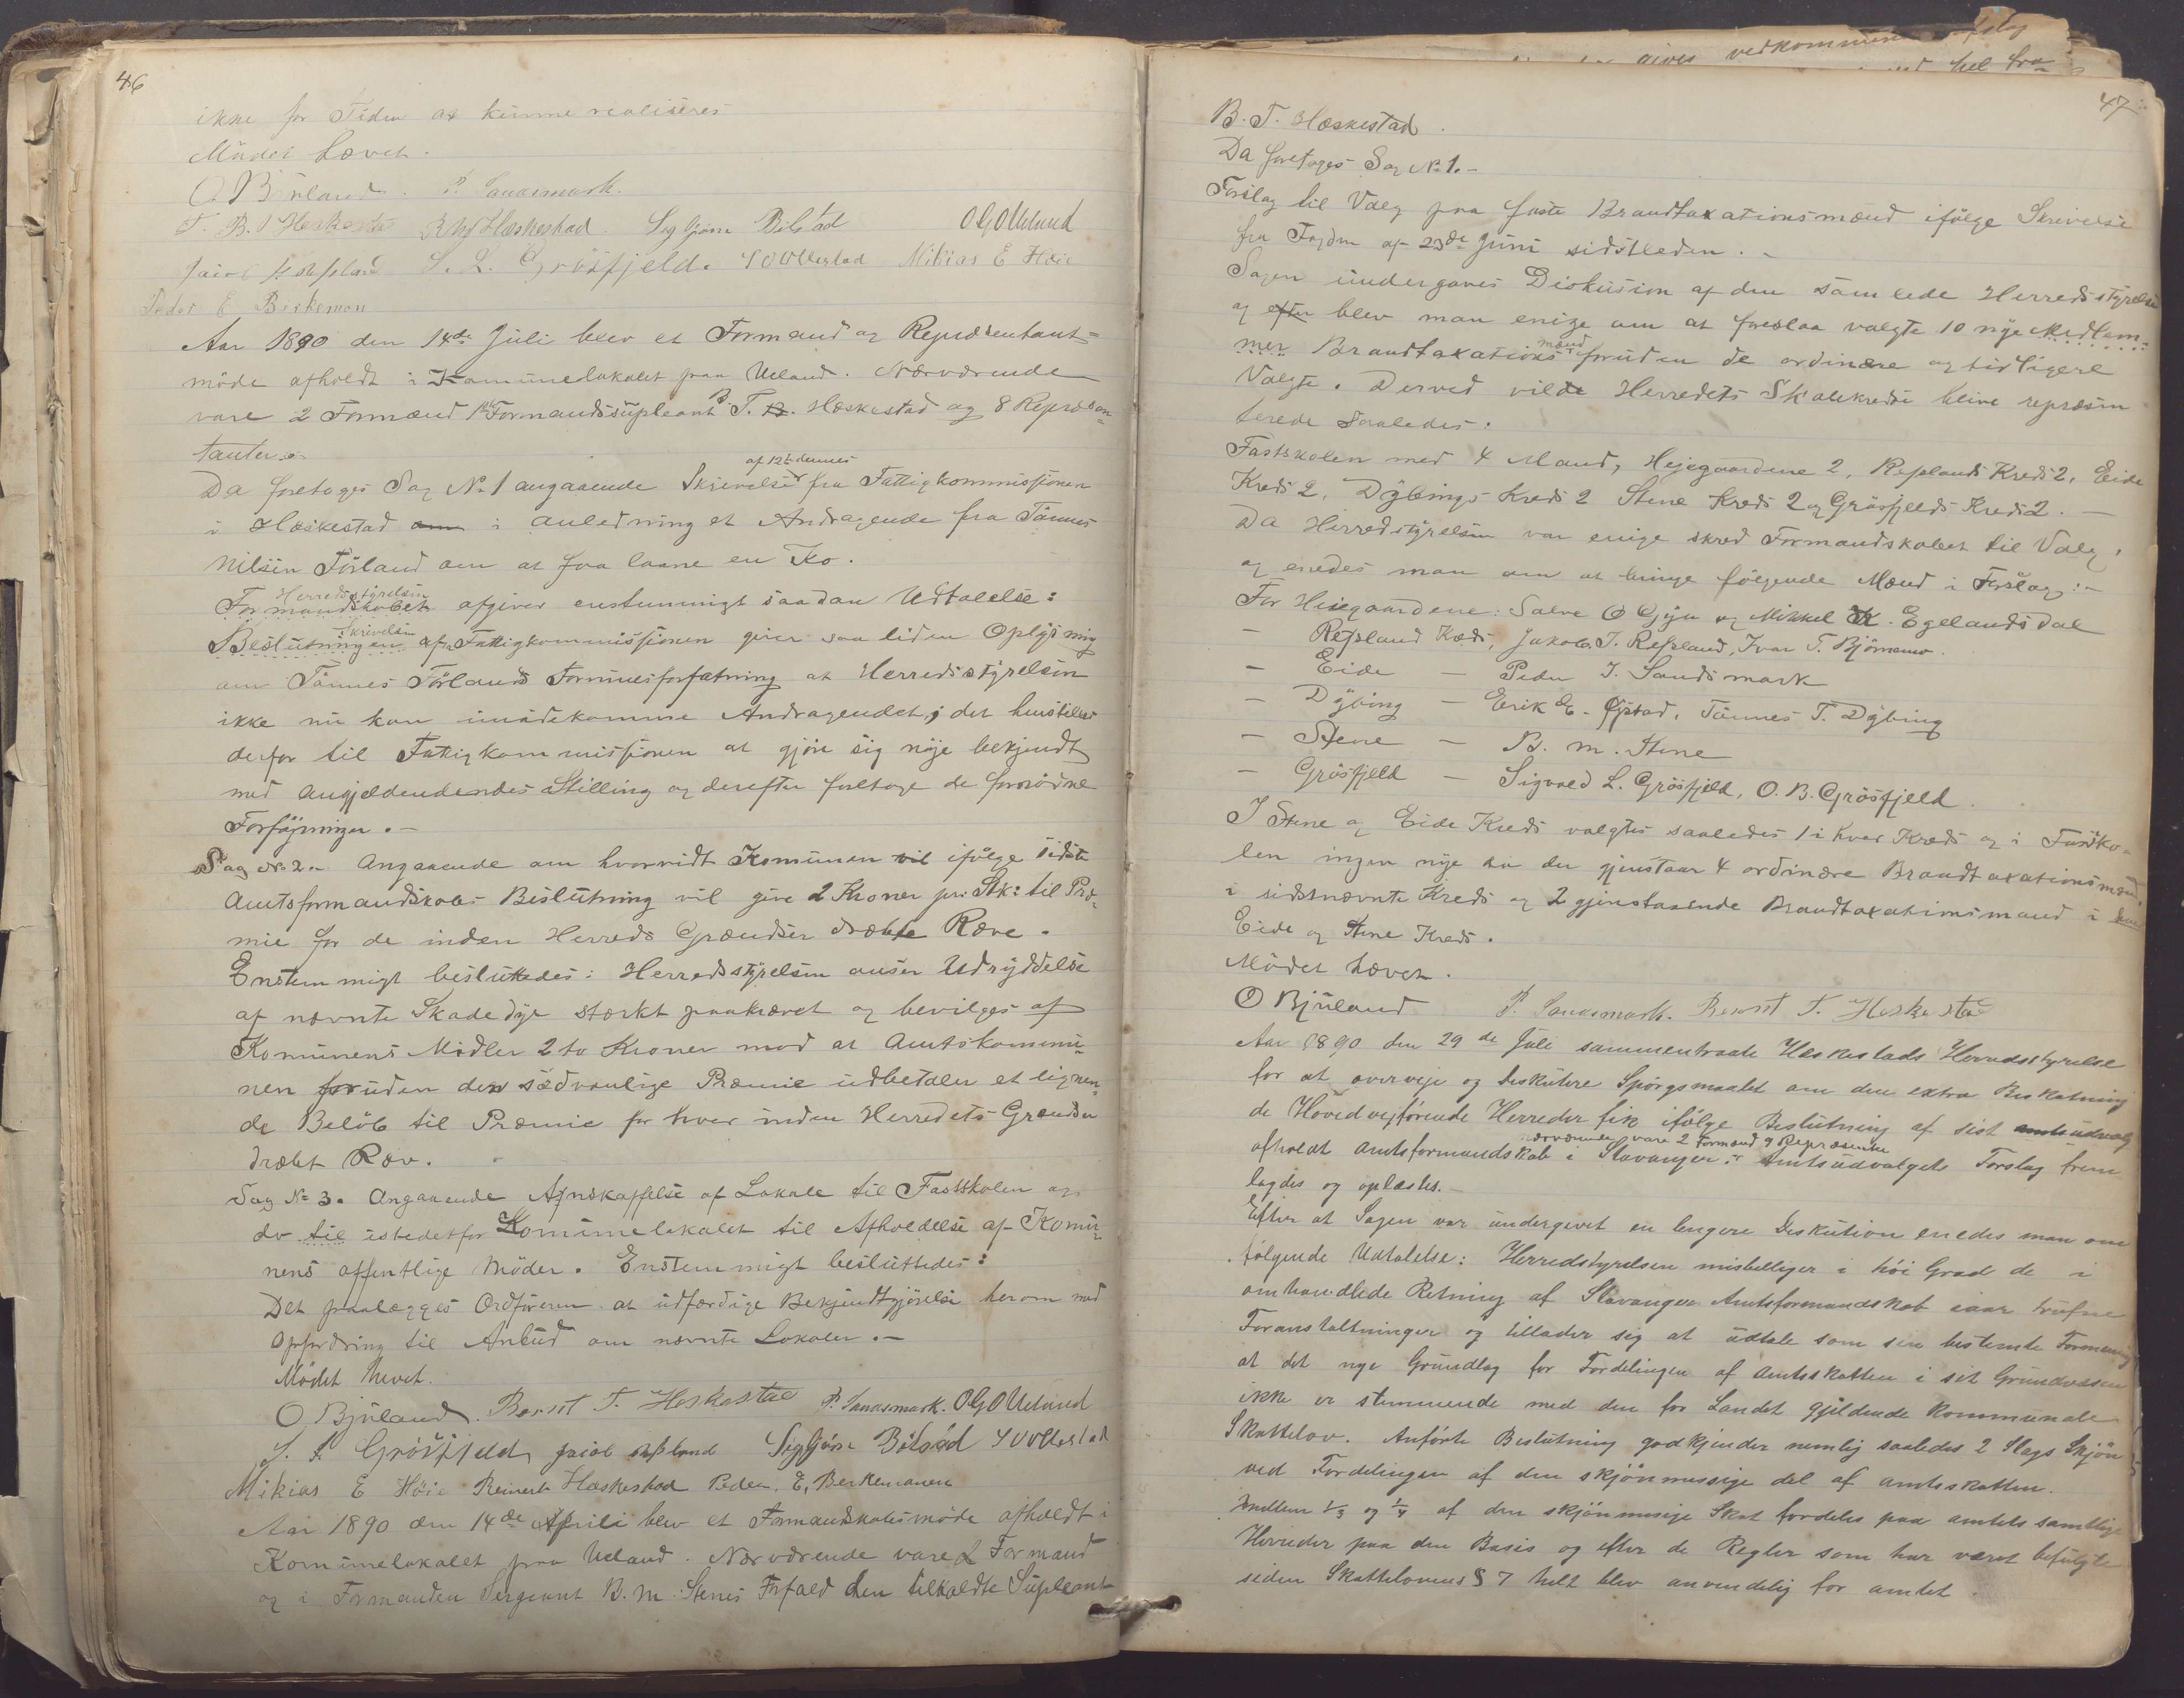 46
ikke for Tiden at kunne realiseres
Mödet hævet.
O Bjuland. P. Sandsmark.
T. B. Heskestad R Hæskestad Sigbjörn Bilstad O G O Ueland
Jacob Refsland S. L. Grösfjeld. Mikias E Höie
Peder E Berkemon
Aar 1890 den 14de Juli blev et Formand og Repræsentant-
möde afholdt i Kommunelokalet paa Ueland. Nærværende
vare 2 Formænd 1ste Formandssupleant B. T. Hæskestad og 8 Repræsen-
tanter.
Da foretages Sag No 1 angaaende Skrivelse af 12te dennes fra Fattigkommissjonen
i Hæskestad i anledning et Andragende fra Tönnes
Nilsen Förland om at faa laane en Ko.
Herredsstyrelsen
Formandskabet afgiver enstemmigt saadan Udtalelse:
Skrivelsen
Beslutningen af Fattigkommissjonen giver saa liden Oplysning
om Tönnes Förlands Formuesforfatning at Herredsstyrelsen
ikke nu kan imödekomme Andragendet; det henstilles
derfor til Fattigkommissjonen at gjöre sig nöje bekjendt
med angjældendendes Stilling og derefter foretage de fornödne
Forföjninger.-
Sag No 2. Angaaende om hvorvidt Komunen vil ifölge sidste
Amtsformandskabs Beslutning vil give 2 Kroner pr: Stk: til Præ-
mie for de inden Herreds Grændser dræbte Ræve.
Enstemmigt besluttedes: Herredsstyrelsen anser Udryddelse
af nævnte Skadedyr stærkt paakrævet og bevilges af
Komunens Midler 2 to Kroner mod at Amtskommu-
nen foruden den sædvanlige Præmie udbetaler et lignen-
de Belöb til Præmie for hver inden Herredets Grændser
dræbt Ræv.
Sag No 3. Angaaende Afnskaffelse af Lokale til Fastskolen og
do til istedetfor Komunelokalet til Afholdelse af Komu-
nens offentlige Möder. Enstemmigt besluttedes:
Det paalægges Ordföreren at udfærdige Bekjendtgjörelse herom med
Opfordring til Anbud om nævnte Lokaler.-
Mödet hævet.
O Bjuland. Bernt T. Heskestad P. Sandsmark. O G O Ueland
S. L. Grösfjeld Jacob Refsland Sigbjörn Bilstad
Mikias E Höie Reinert Hæskestad Peder. E. Berkemonen
Aar 1890 den 14de Aprili blev et Formandskabsmöde afholdt i
Komunelokalet paa Ueland. Nærværende vare 2 Formænd
og i Formanden Sergeant B. M. Stenes Forfald den tilkaldte Supleant
47
B. T. Hæskestad.
Da foretoges Sag No 1.-
Forslag til Valg paa faste Brandtaxationsmænd ifölge Skrivelse
fra Fogden af 23de Juni sidstleden.-
Sagen undergaves Diskusion af den samlede Herredsstyrelse
og efter blev man enige om at foreslaa valgte 10 nye Medlem-
mer Brandtaxationsmænd foruden de ordinære og tidligere
Valgte. Derved vilde Herredets Skolekredse blive repræsen-
terede saaledes:
Fastskolen med 4 Mand, Hejegaardene 2, Replands Kreds 2, Eide
Kreds 2, Dybings Kreds 2 Stene Kreds 2 og Grösfjelds Kreds 2.-
Da Herredstyrelsen var enige skred Formandskabet til Valg,
og enedes man om at bringe fölgende Mænd i Forslag:-
For Heiegaardene: Salve O Gya og Mikkel K. Egelandsdal
- Refsland Kreds, Jakob. J. Refsland, Ivar T. Björnemo.
- Eide - Peder J. Sandsmark
- Dybing - Erik E. Östad, Tönnes T. Dybing
- Stene - B. M. Stene
- Grösfjeld - Sigvald L. Grösfjeld, O. B. Grösfjeld.
I Stene og Eide Kreds valgtes saaledes 1 i hver Kreds og i Fastsko-
len ingen nye da der gjenstaar 4 ordinære Brandtaxationsmænd
i sidstnævnte Kreds og 2 gjenstaaende Brandtaxationsmænd i
Eide og Stene Kreds.
Mödet hævet.
O Bjuland P. Sandsmark. Bernt T. Heskestad
Aar 1890 den 29de Juli sammentraate Hæskestads Herredsstyrelse
for at overveje og diskutere Spörgsmaalet om den extra Beskatning
de Hovedvejförende Herreder fik ifölge Beslutning af sist amtsudvalg
nærværende vare 2 Formænd 9 Repræsenter
afholdt amtsformandskab i Stavanger. Amtsudvalgets Forslag frem
lagdes og oplæstes.-
Efter at Sagen var undergivet en lengere Diskution enedes man om
fölgende Udtalelse: Herredstyrelsen misbilliger i höi Grad de i
omhandlede Retning af Stavanger Amtsformandskab iaar trufne
Foranstaltninger og tillader sig at udtale som sin bestemte Formening
at det nye Grundlag for Fordelingen af Amtsskatten i sit Grundvesen
ikke er stemmende med den for Landet gjeldende Kommunale
Skattelov. Anförte Beslutning godkjender nemlig saaledes 2 Slags Skjön
ved Fordelingen af den skjönmessige del af amtsskatten.
Mellem 1/3 og 1/4 af den skjönmesige Skat fordeles paa amtets samtlige
Herreder paa den Basis og efter de Regler som har været befulgte
siden Skattelovens § 7 helt blev anvendelig for amtet.